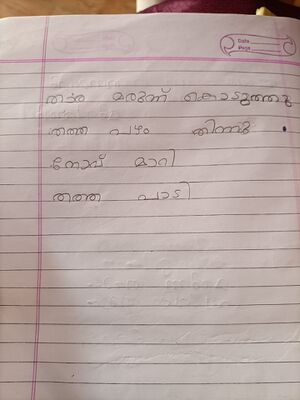 Date
Page
താര മരുന്ന് കൊടുത്തു
തത്ത പഴം തിന്നു .
നോവ് മാറി
തത്ത പാടി